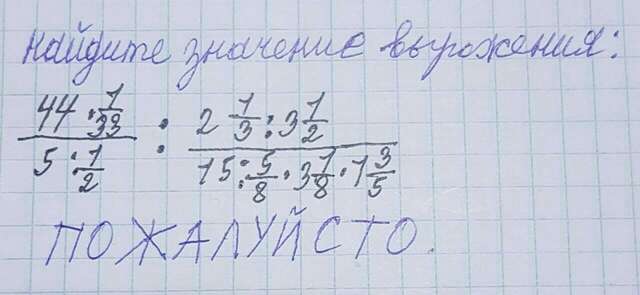 найдите значение вырожения:
44 · 1/33 / 5 · 1/2 : 2 1/3 : 3 1/2 / 15 : 5/8 · 3 1/8 · 1 3/5
ПОЖАЛУЙСТО.